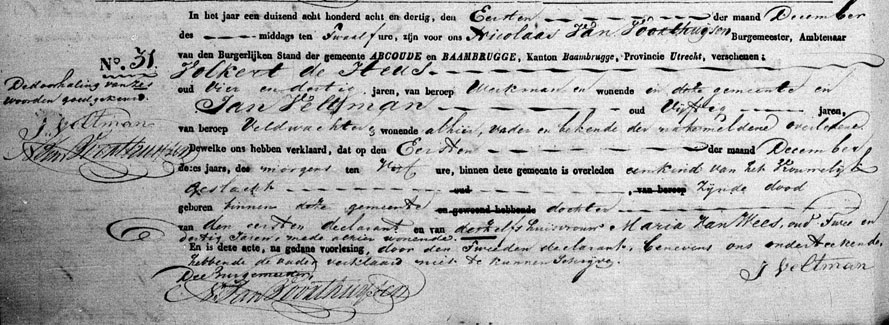 In het jaar een duizend acht honderd acht en dertig, den Eersten der maand December
des middags ten Twaalf ure, zijn voor ons Nicolaas Van Voorthuysen Burgemeester, Ambtenaar
van den Burgerlijken Stand der gemeente ABCOUDE en BAAMBRUGGE, Kanton Baambrugge, Provincie Utrecht, verschenen:
No. 31.
Volkert de Heus
De doorhaling van zes
woorden goedgekeurd.
J. Veltman
N. Van Voorthuysen
oud Vier en dertig jaren, van beroep Werkman en wonende en deze gemeente en
Jan Veltman oud Vijftig jaren,
van beroep Veldwachter, wonende alhier, vader en bekende der nagemeldene overledene
Dewelke ons hebben verklaard, dat op den Eersten der maand December
dezes jaars, des morgens ten ure, binnen deze gemeente is overleden een kind van het Vrouwelijk
geslacht oud , van beroep zijnde dood
geboren binnen deze gemeente en gewoond hebbende dochter
van den eersten declarant en van deszelfs huisvrouw Maria Van Wees, oud Twee en
dertig Jaren mede alhier wonende.
En is deze acte, na gedane voorlezing, door den Tweeden declarant, benevens ons onderteekend,
hebbende de vader verklaard niet te kunnen schrijven
De Burgemeester J Veltman
N. Van Voorthuysen